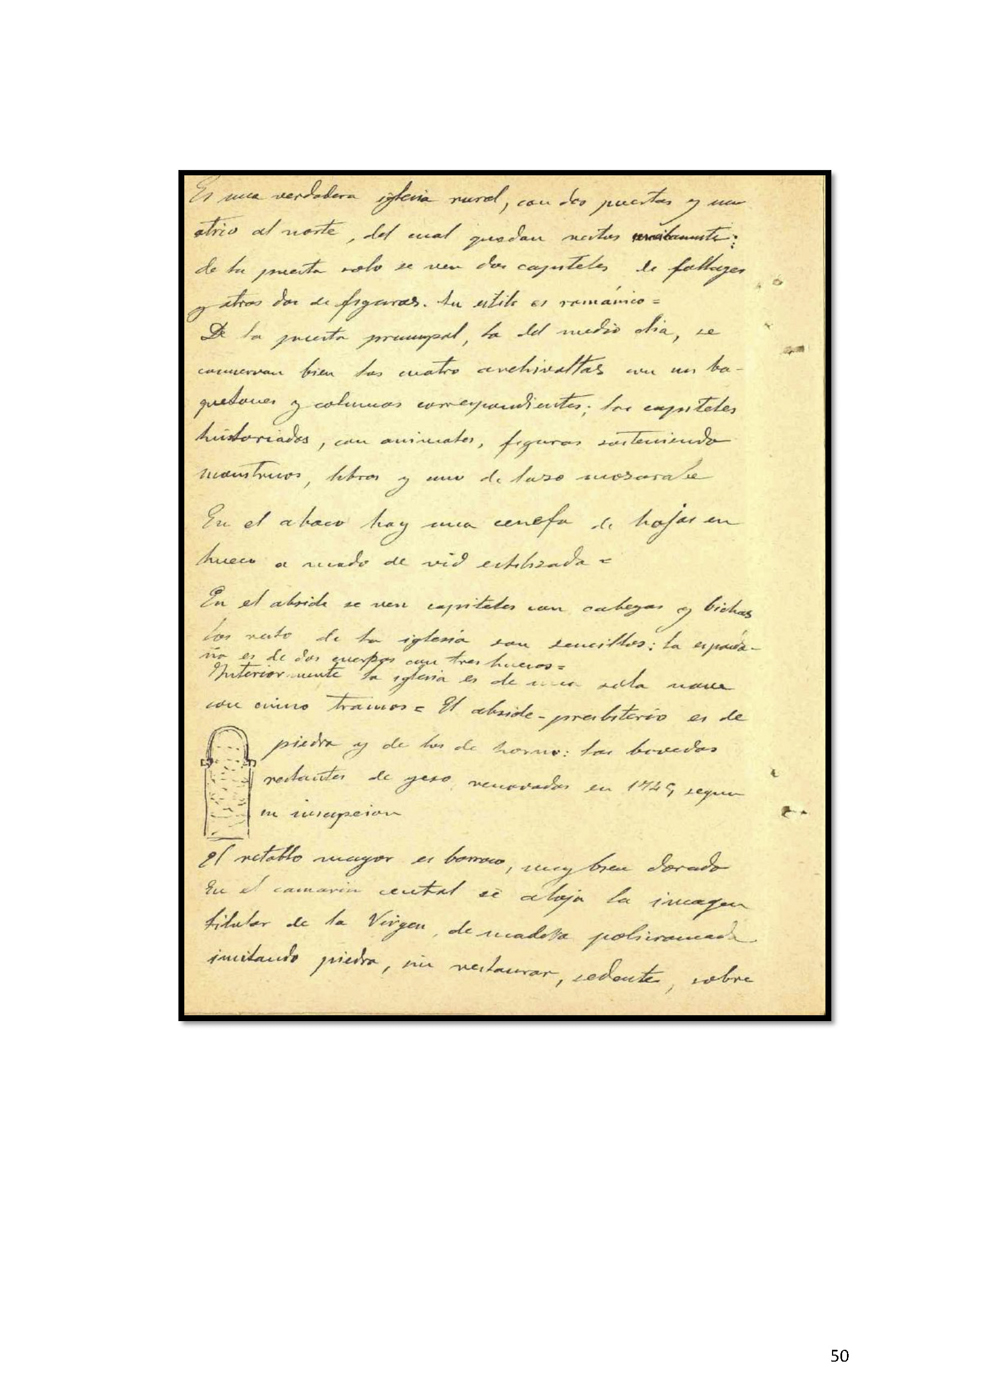 Es una verdadera iglesia rural, con dos puertas y un
atrio al norte, del cual quedan restos
de la puerta solo se ven dos capiteles de follages
y otros dos de figuras. Su estilo es románico =
De la puerta principal, la del medio dia, se
conservan bien las cuatro archivoltas con sus ba-
quetones y columnas correspondientes; los capiteles
historiados, con animales, figuras sosteniendo
monstruos, libros y uno de lazo mozarabe
En el abaco hay una cenefa de hojas en
hueco a modo de vid estilizada =
En el abside se ven capiteles con cabezas y bichas
los resto de la iglesia son sencillos: la espada-
ña es de dos cuerpos con tres huecos =
Interiormente la iglesia es de una sola nave
con cinco tramos = El abside-presbiterio es de
piedra y de los de horno: las bovedas
restantes de yeso, renovadas en 1725, segun
su inscripcion
El retablo mayor es barroco, muy bien dorado
En el camarin central se aloja la imagen
titular de la Virgen, de madera policromada
imitando piedra, sin restaurar, sedente, sobre
50